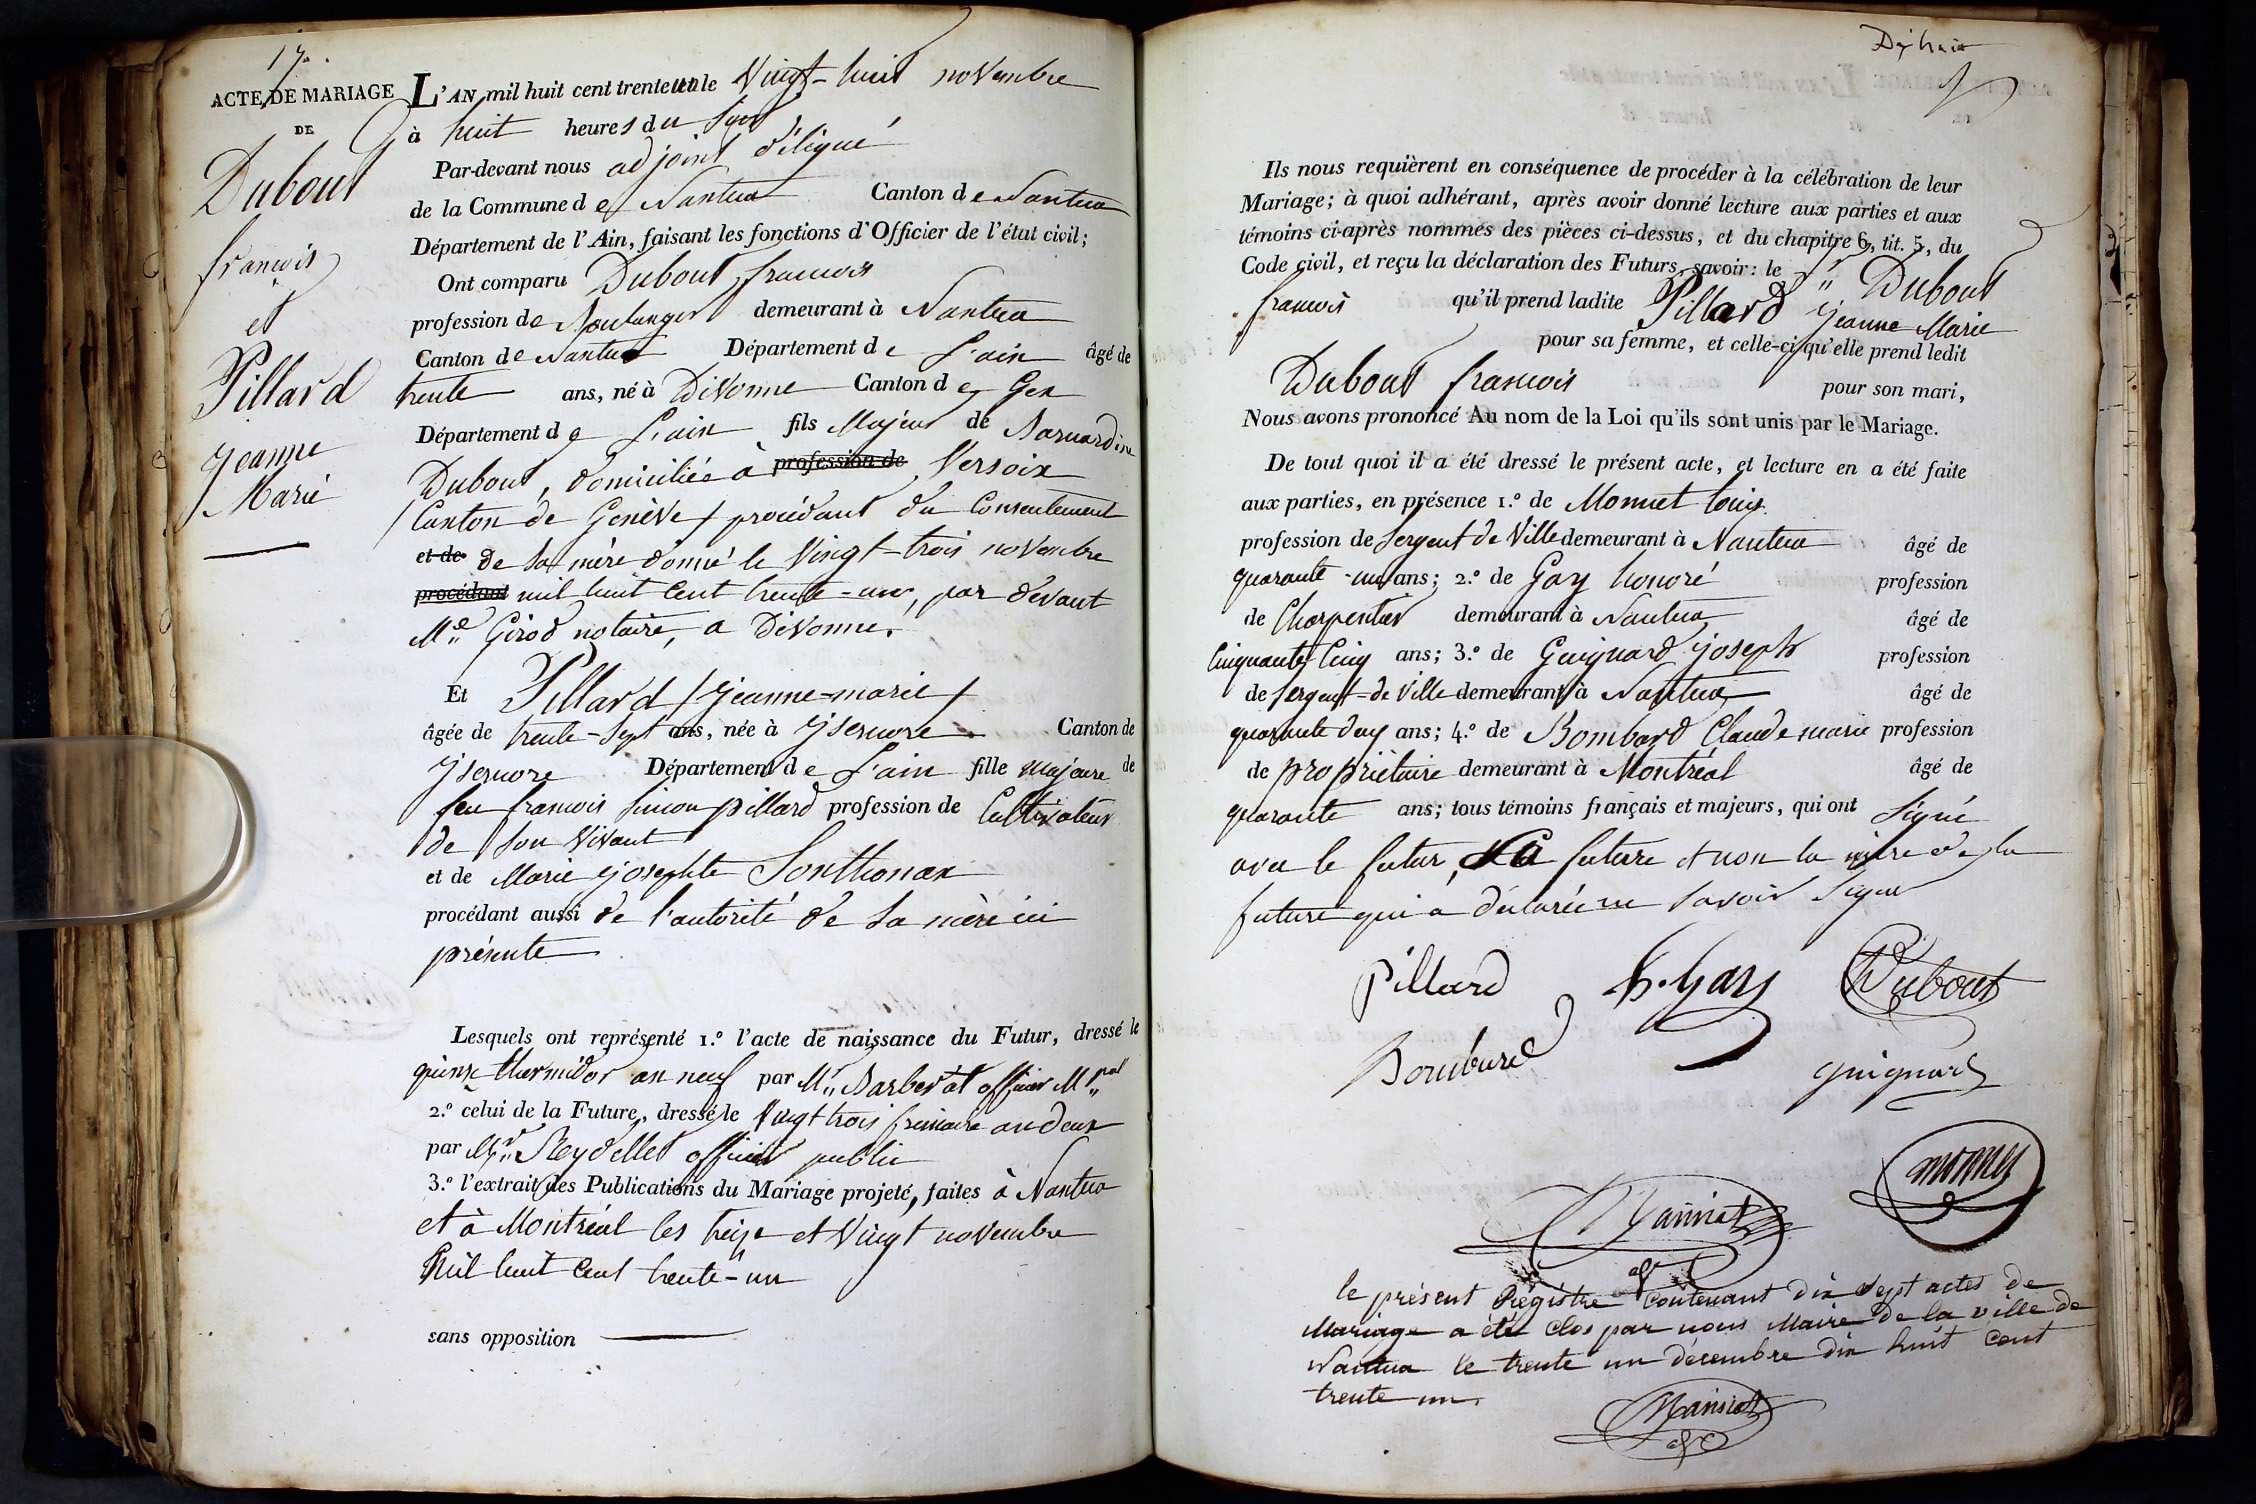 17.
ACTE DE MARIAGE
DE
Dubout
françois
et
Pillard
Jeanne
Marie
L'AN mil huit cent trente un le Vingt-huit novembre
à huit heures du soir
Par-devant nous adjoint délégué
de la Commune de Nantua Canton de Nantua
Département de l'Ain, faisant les fonctions d'Officier de l'état civil;
Ont comparu Dubout françois
profession de Boulanger demeurant à Nantua
Canton de Nantua Département de L'ain âgé de
trente ans, né à Divonne Canton de Gex
Département de L'ain fils Majeur de Bernardine
Dubout, domiciliée à profession de Versoix
(Canton de Genève) procédant du Consentement
et de de sa mère donné le Vingt-trois novembre
procédant mil huit Cent trente-un, par devant
Me Girod notaire, a Divonne.
Et Pillard (Jeanne-marie)
âgée de trente-sept ans, née à Jsernore Canton de
Jsernore Département de L'ain fille majeure de
feu françois Simon pillard profession de Cultivateur
de son Vivant
et de Marie josephte Sonthonax
procédant aussi de l'autorité de sa mère ici
présente
Lesquels ont représenté 1.º l'acte de naissance du Futur, dressé le
quinze thermidor an neuf par Mr. Barberat officier Mpal
2.º celui de la Future, dressé le Vingt trois frimaire an deux
par Mr. Reydellet officier public
3.º l'extrait des Publications du Mariage projeté, faites à Nantua
et à Montréal les treize et Vingt novembre
Mil huit Cent trente-un
sans opposition
Ils nous requièrent en conséquence de procéder à la célébration de leur
Mariage; à quoi adhérant, après avoir donné lecture aux parties et aux
témoins ci-après nommés des pièces ci-dessus, et du chapitre 6, tit. 5, du
Code civil, et reçu la déclaration des Futurs, savoir: le Sr. Dubout
françois qu'il prend ladite Pillard Jeanne Marie
pour sa femme, et celle-ci qu'elle prend ledit
Dubout françois pour son mari,
Nous avons prononcé Au nom de la Loi qu'ils sont unis par le Mariage.
De tout quoi il a été dressé le présent acte, et lecture en a été faite
aux parties, en présence 1.º de Monnet louis
profession de Sergent de Ville demeurant à Nantua âgé de
quarante-un ans; 2.º de Gay honoré profession
de Charpentier demeurant à Nantua âgé de
Cinquante Cinq ans; 3.º de Guignard joseph profession
de sergent-de Ville demeurant à Nantua âgé de
quarante deux ans; 4.º de Bombard Claude marie profession
de propriétaire demeurant à Montréal âgé de
quarante ans; tous témoins français et majeurs, qui ont signé
avec le futur, la future et non la mère de la
future qui a déclaré ne savoir signer
Pillard h. Gay Dubout
Bombard guignard
monnet
le présent Régistre contenant dix sept actes de
Mariage a été clos par nous Maire de la ville de
Nantua le trente un décembre dix huit cent
trente un.